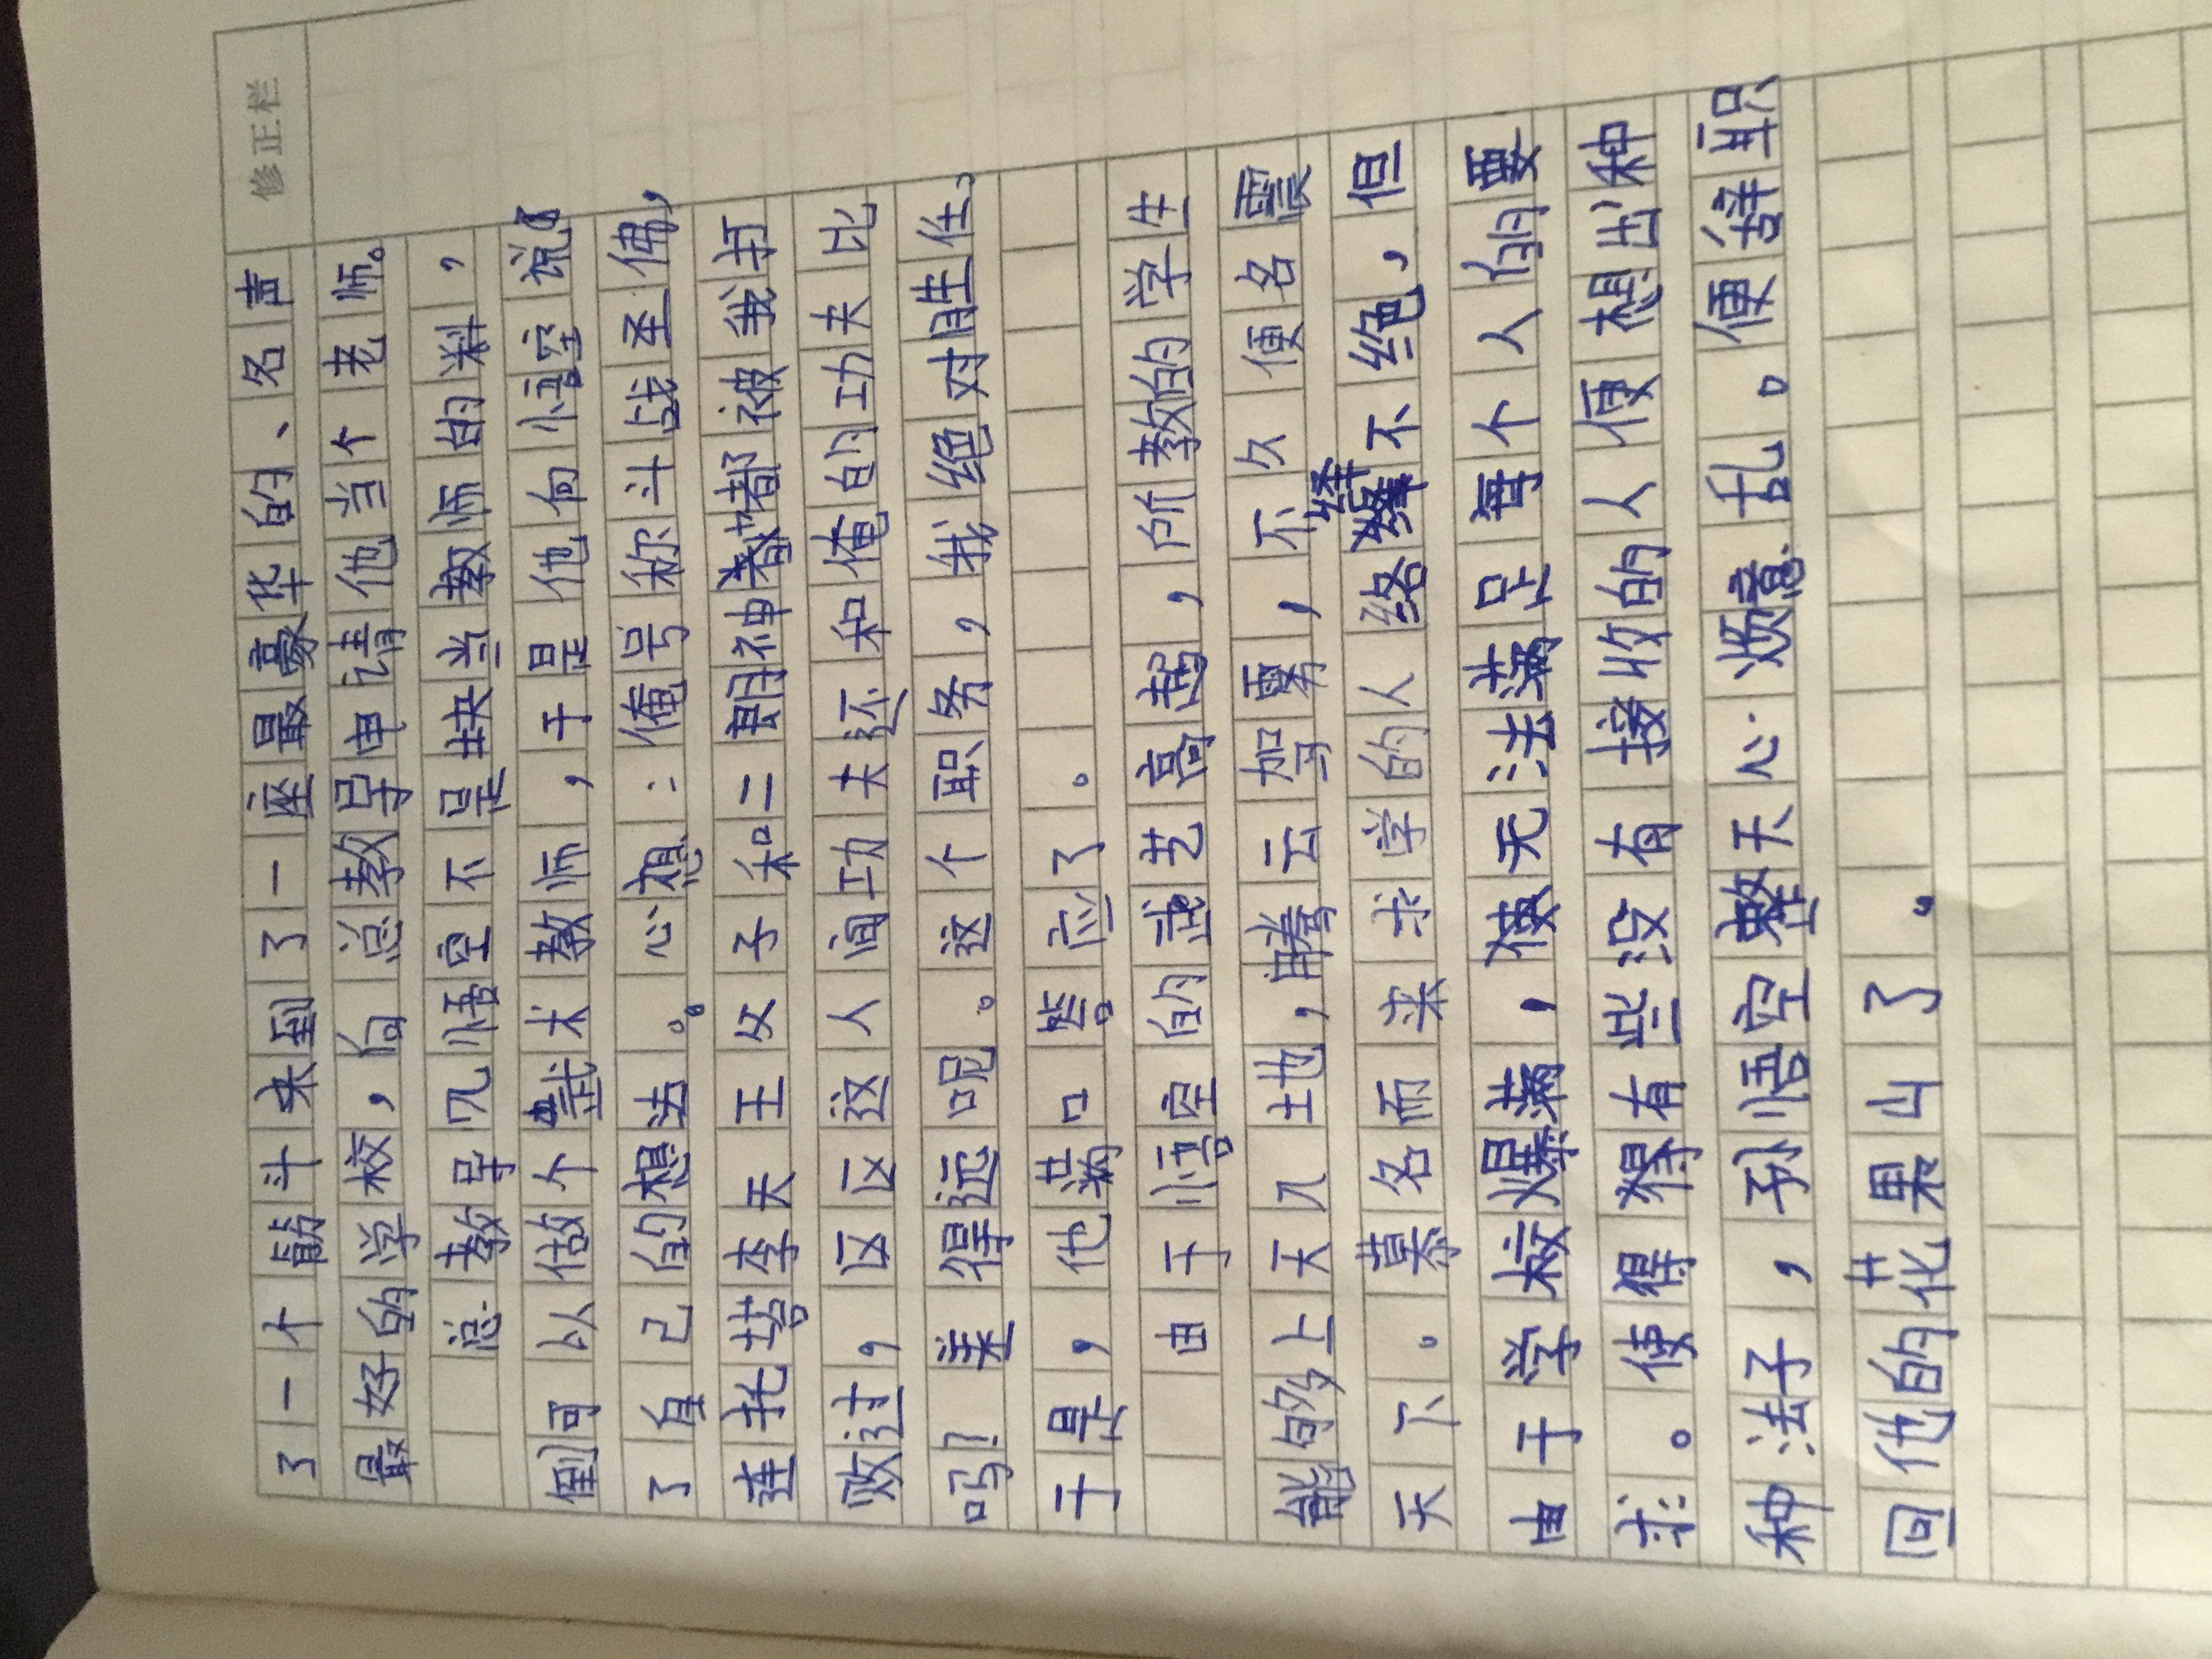 修正栏
了一个筋斗来到了一座最豪华的、名声
最好的学校，向总教导申请他当个老师。
总教导见悟空不是块当教师的料，
倒可以做个武术教师，于是他向悟空说了
了自己的想法。。心想：俺号称斗战圣佛，
连托塔李天王父子和二郎神都被我打
败过，区区这人间功夫还和俺的功夫比
吗？差得远呢。这个职务，我绝对胜任。
于是，他满口答应了。
由于悟空的武艺高超，所教的学生
能够上天入地，腾云驾雾，不久便名震
天下。慕名而来求学的人络绎不绝，但
由于学校爆满，使无法满足每个人的要
求。使得得有些没有接收的人便想出种
种法子，孙悟空整天心烦意乱。便辞职
回他的花果山了。